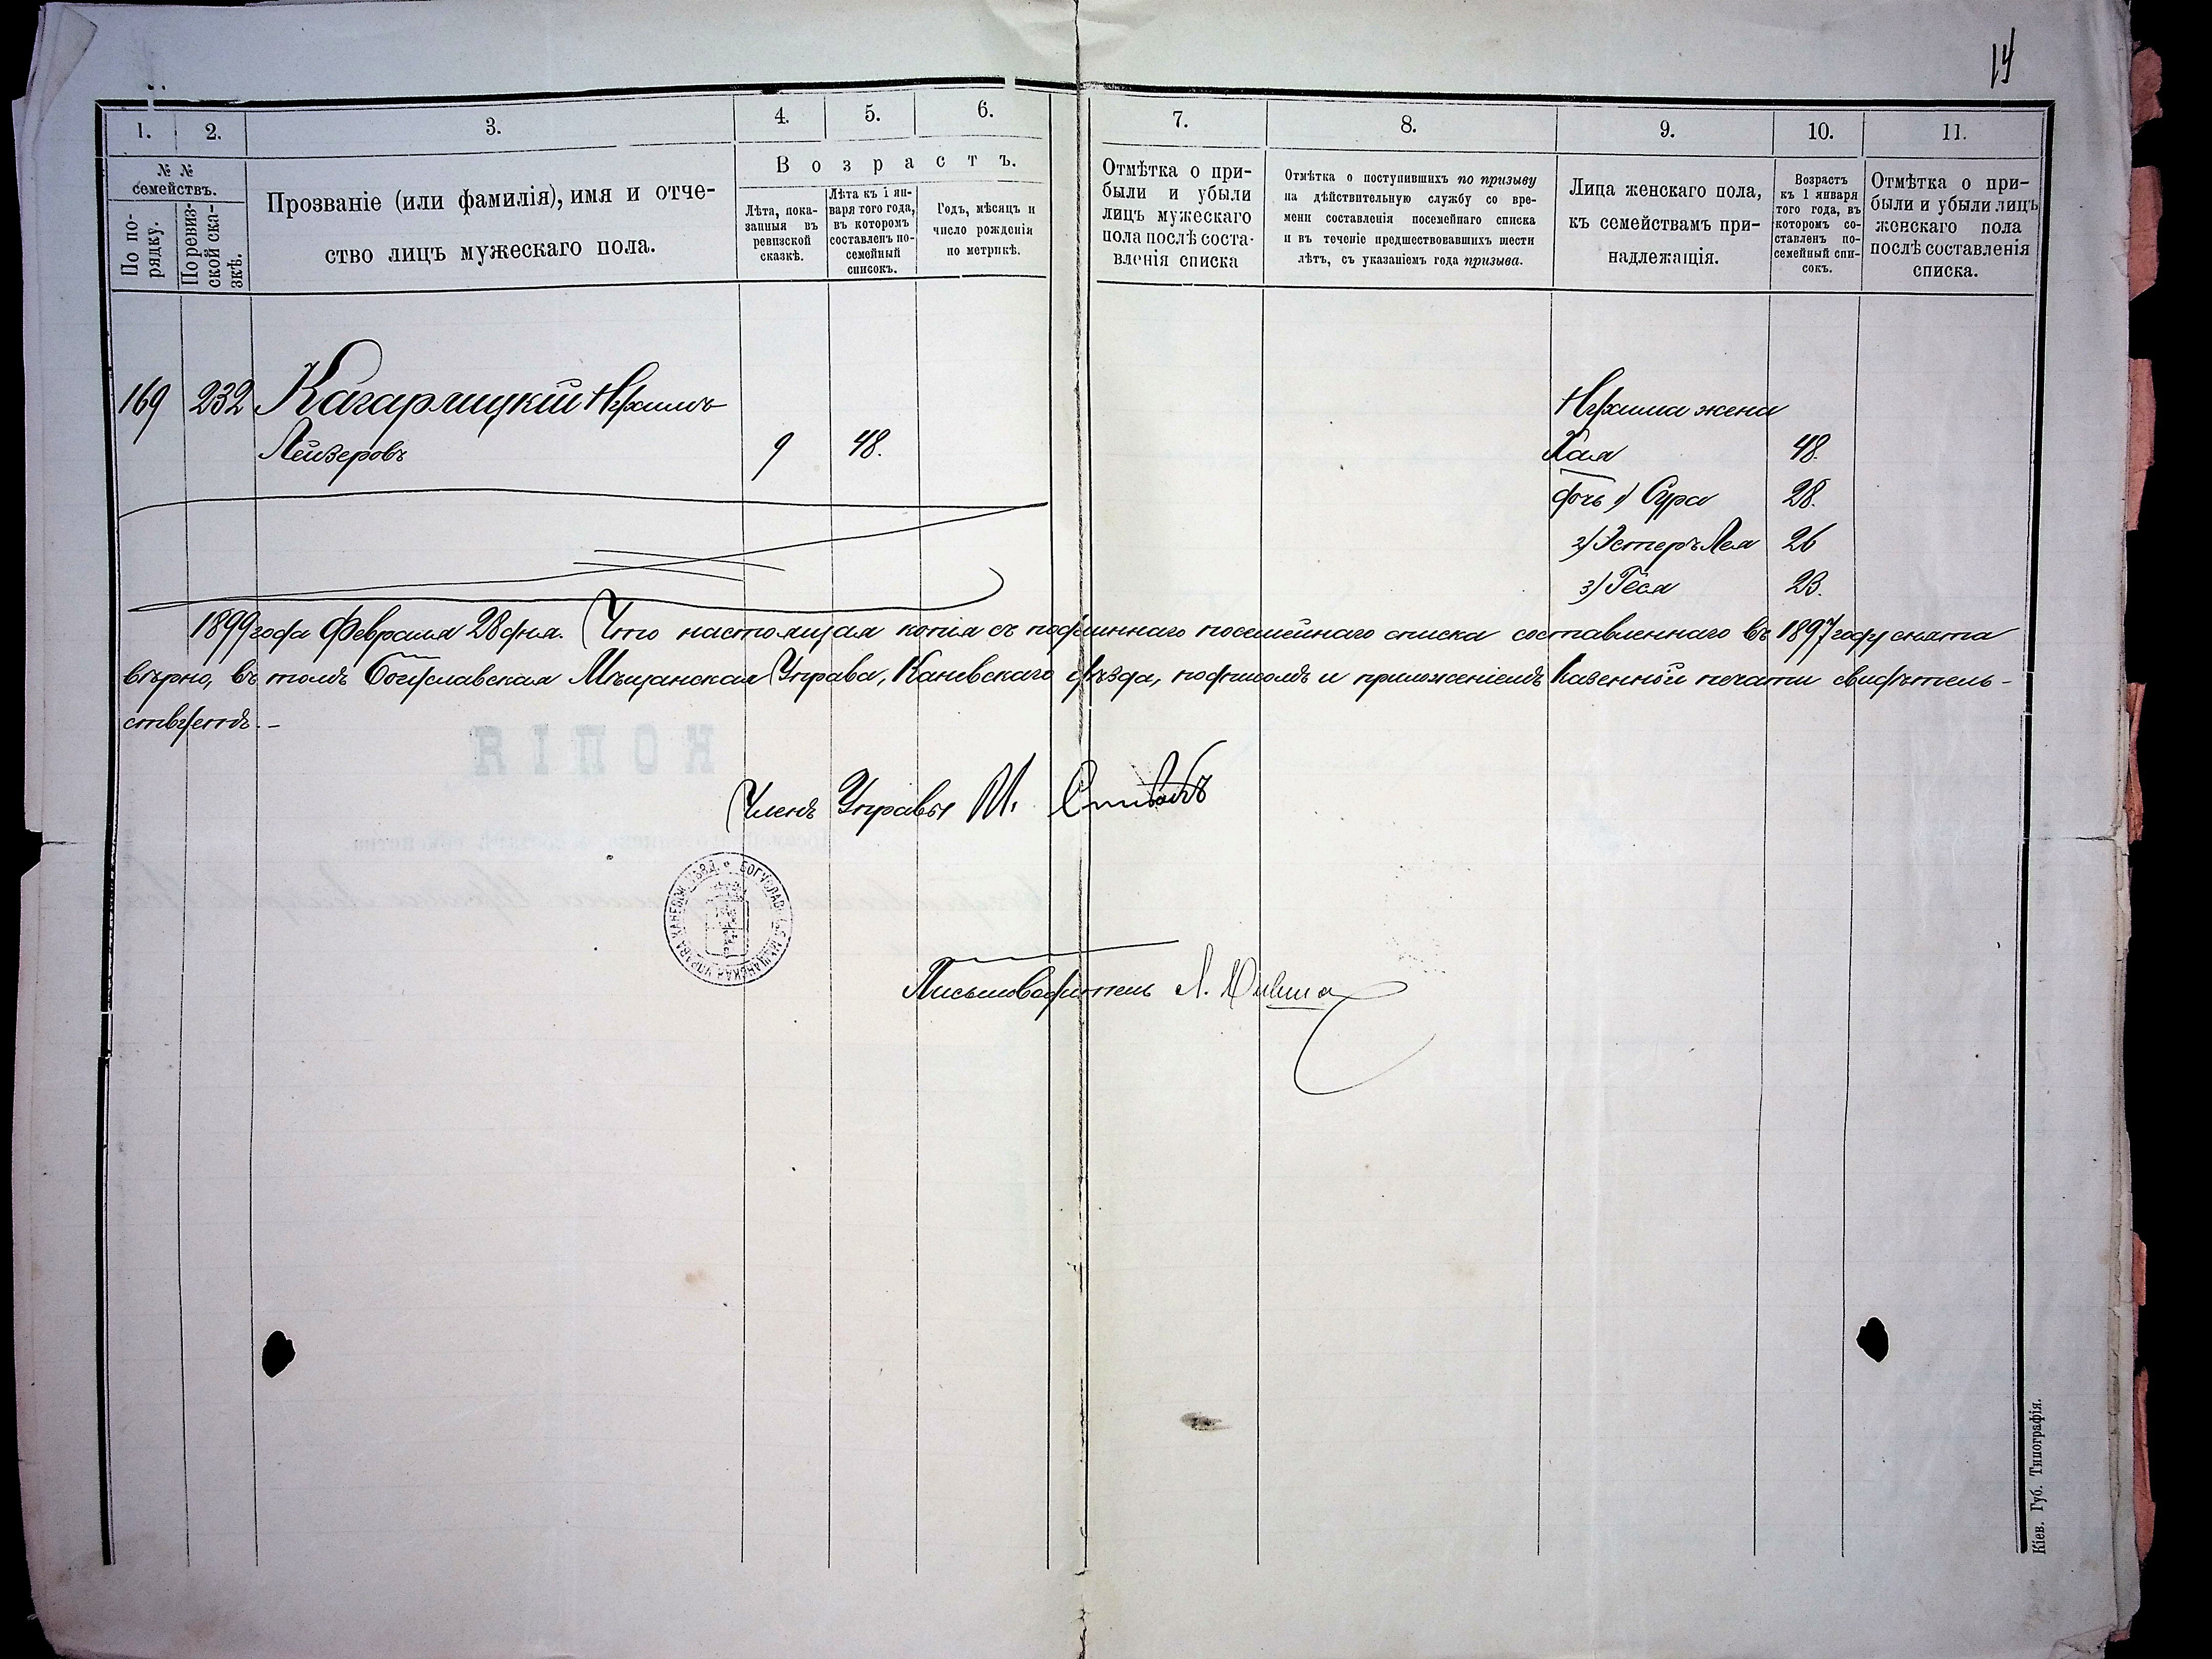 14
1. 2. 3. 4. 5. 6. 7. 8. 9. 10. 11.
№ №
семействъ.
По по-
рядку.
По ревиз-
ской ска-
зкѣ.
Прозваніе (или фамилія), имя и отче-
ство лицъ мужескаго пола.
Возрастъ.
Лѣта, пока-
занныя въ
ревизской
сказкѣ.
Лѣта къ 1 ян-
варя того года,
въ которомъ
составленъ по-
семейный
списокъ.
Годъ, мѣсяцъ и
число рожденія
по метрикѣ.
Отмѣтка о при-
были и убыли
лицъ мужескаго
пола послѣ соста-
вленія списка
Отмѣтка о поступившихъ по призыву
на дѣйствительную службу со вре-
мени составленія посемейнаго списка
и въ теченіе предшествовавшихъ шести
лѣтъ, съ указаніемъ года призыва.
Лица женскаго пола,
къ семействамъ при-
надлежащія.
Возрастъ
къ 1 января
того года, въ
которомъ со-
ставленъ по-
семейный спи-
сокъ.
Отмѣтка о при-
были и убыли лицъ
женскаго пола
послѣ составленія
списка.
169 232 Кагарлицкій Нухимъ
Лейзеровъ 9 48.
Нухима жена
Хая 48.
дочь 1) Сура 28.
2) Эстеръ Лея 26
3) Геся 23.
1899 года Февраля 28 дня. Что настоящая копія съ подлиннаго посемейнаго списка составленнаго въ 1897 году снята
вѣрно, въ томъ Богуславская Мѣщанская Управа, Каневскаго уѣзда, подписомъ и приложеніемъ казенной печати свидѣтель-
ствуетъ.-
КОПІЯ
Членъ Управы М. Спивакъ
БОГУСЛАВСК. МѢЩАНСКАЯ УПРАВА КАНЕВСК. УѢЗД.
Письмоводитель Л.
Кіев. Губ. Типографія.